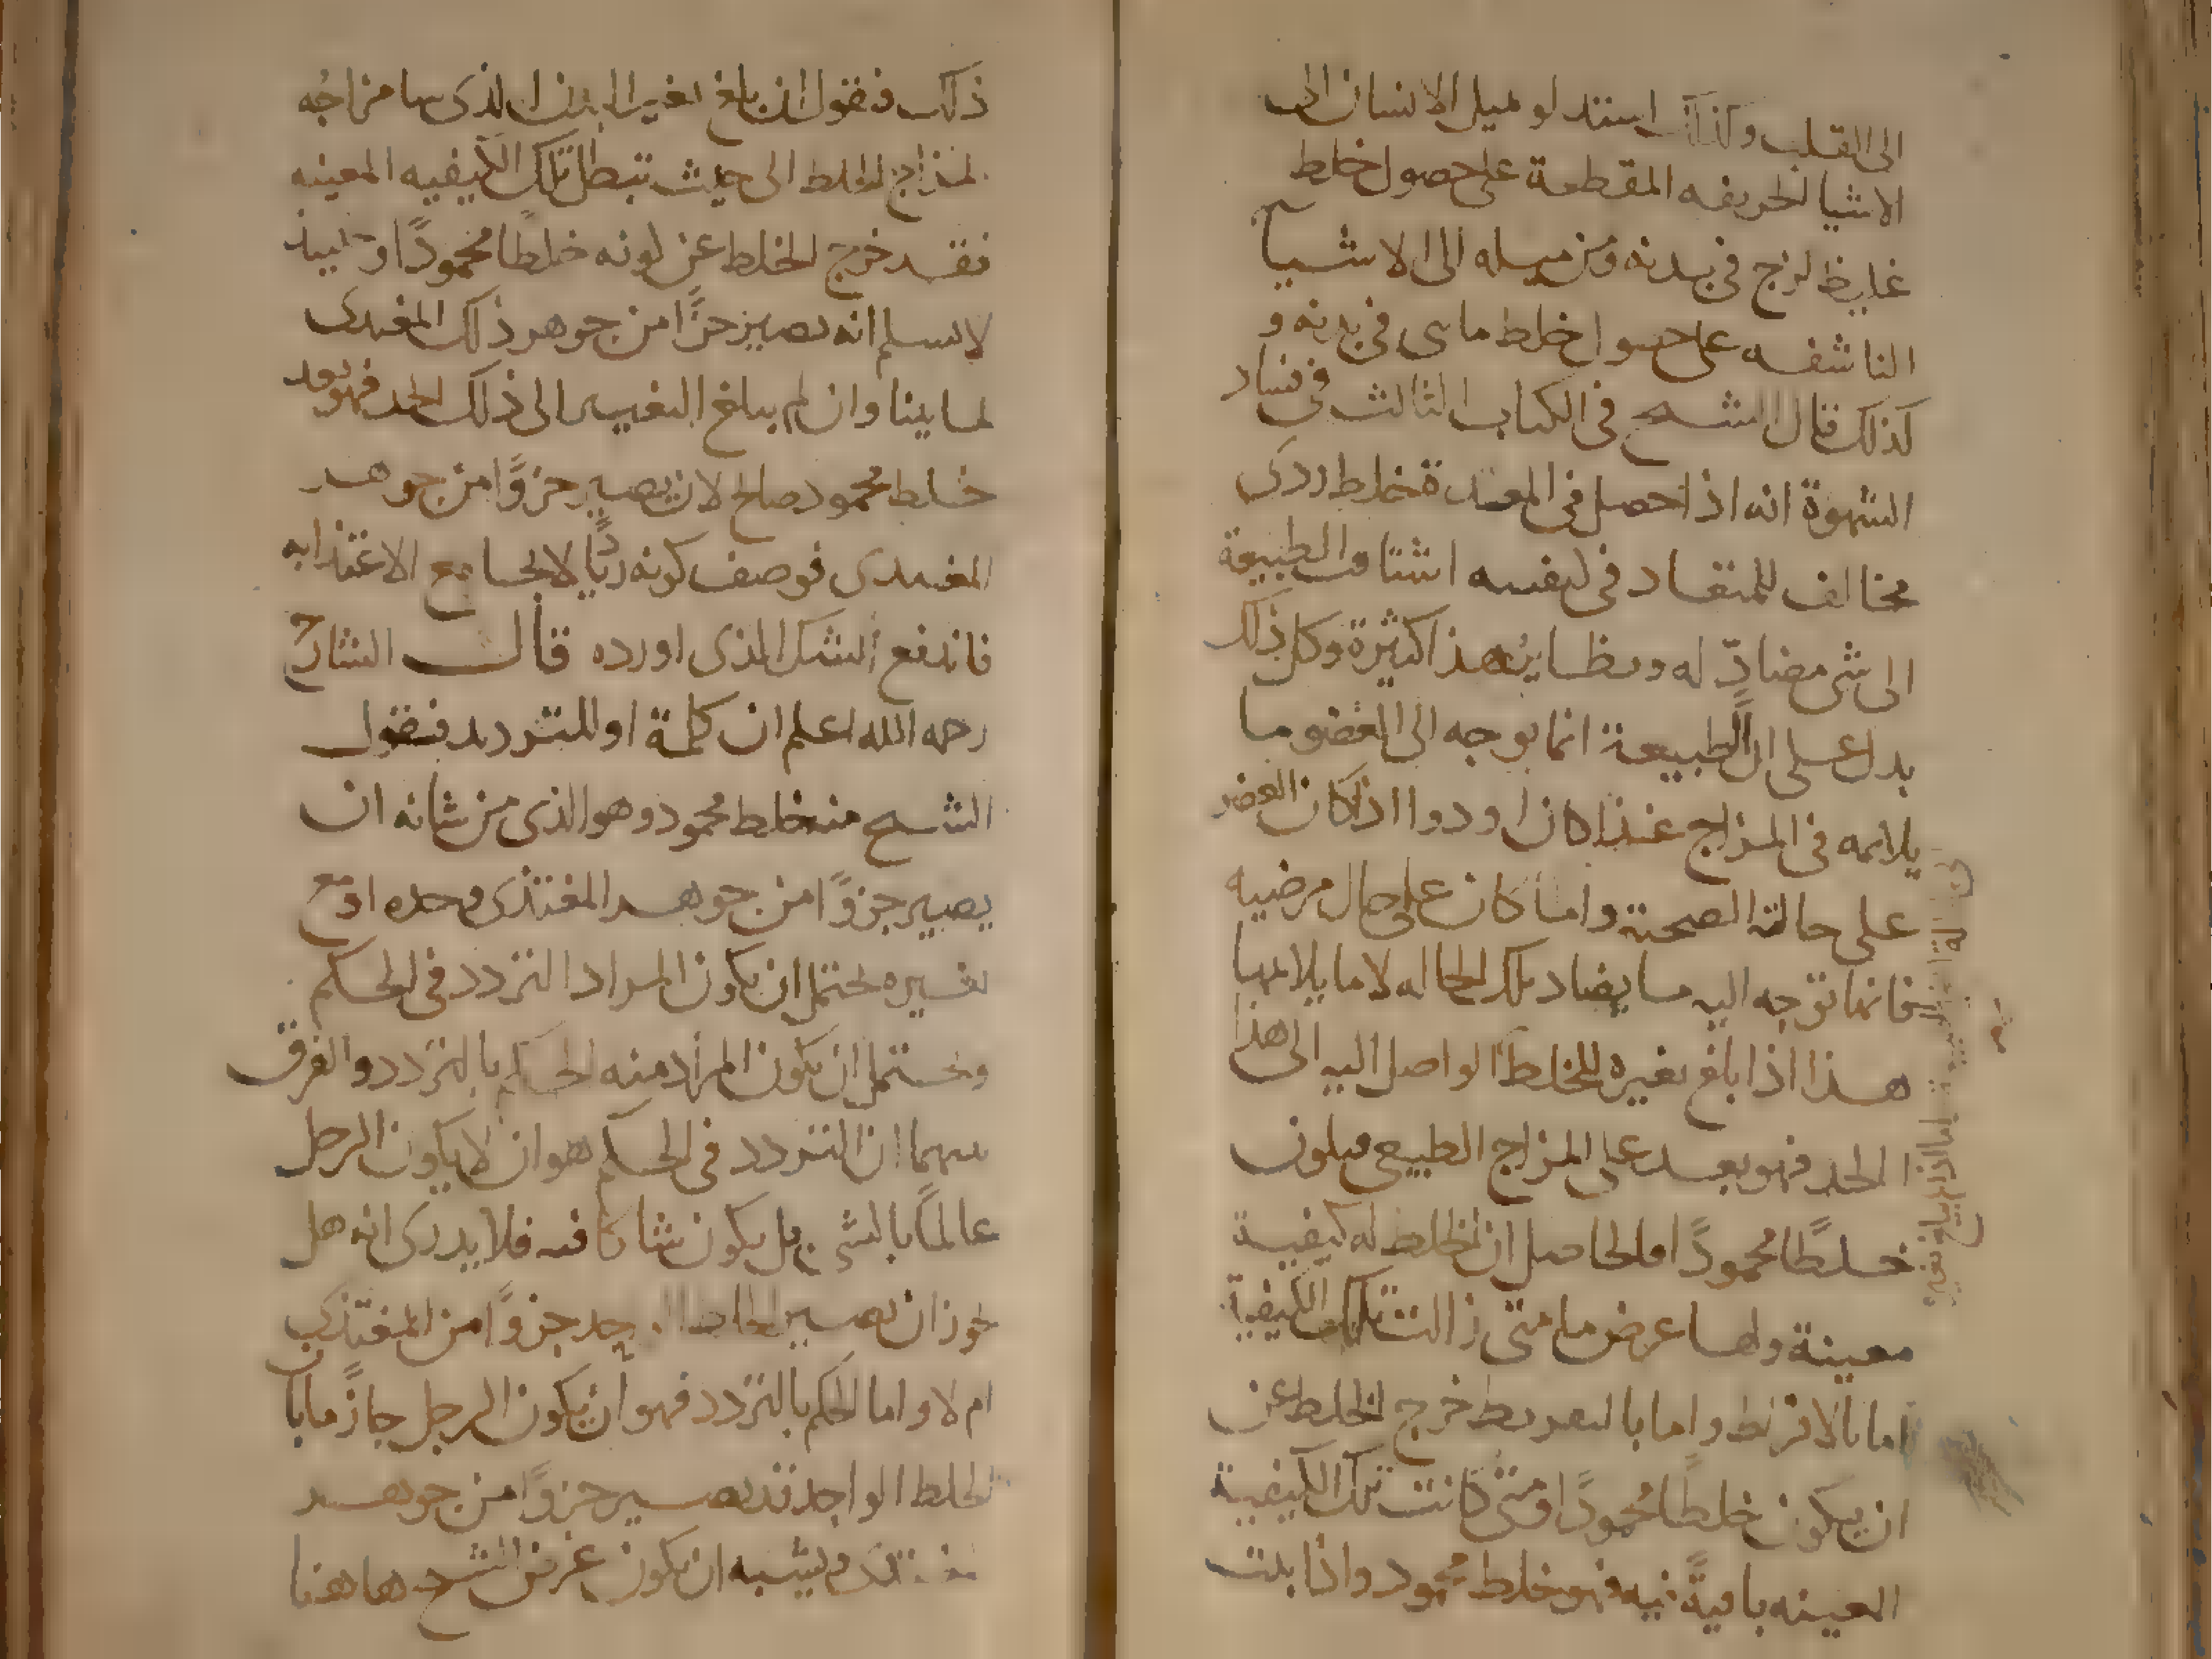 الى القلب وكذلك استدلو لميل الانسان الى
الاشيا الحريفه المقطعة على حصول خلط
غليظ لزج فى بدنه ومن ميله الى الاشيا
الناشفه على حصول خلط ماىى فى بدنه و
كذلك قال الشيخ فى الكتاب الثالث فى فساد
الشهوة انه اذا حصل فى المعدة خلط ردى
مخالف للمعتاد فى كيفيته اشتاقت الطبيعة
الى شى مضادّ له ونظاير هذا كثيرة وكل ذلك
يدل على ان الطبيعة انما توجه الى العضو ما
يلايمه فى المزاج غذا كان او دوا اذا كان العضو
على حالته الصحية واما كان على حال مرضيه
فانما توجه اليه ما يضاد تلك الحاله لا ما يلايمها
هذا اذا بلغ تغيره للخلط الواصل اليه الى هذا
الحد فهو بعد على المزاج الطبيعى فيكون
خلطًا محمودًا والحاصل ان الخلط له كيفية
معينة ولها عرض ما متى زالت تلك الكيفية
اما بالافراط واما بالتفريط خرج الخلط عن
ان يكون خلطًا محمودًا ومتى كانت تلك الكيفية
المعينه باقيةً فيه فهو خلط محمود واذا ثبت
اما اذا لم يبلغ تغيره
ذلك فنقول ان بلغ تغير البدن الذى سا مزاجُه
لمزاج الخلط الى حيث تبطل تلك الكيفيه المعينه
فقد خرج الخلط عن كونه خلطًا محمودًا وحينيذ
لا نسلم انه يصير جزًا من جوهر ذلك المغتدى
لما بينا وان لم يبلغ التغيير الى ذلك الحد فهو بعد
خلط محمود صالح لان يصير جزوًا من جوهر
المغتدى فوصف كونه رديًا لا يجامع الاغتذا به
فاندفع الشك الذى اورده قال الشارح
رحمه الله اعلم ان كلمة او للترديد فنقول
الشيخ منه خلط محمود وهو الذى من شانه ان
يصير جزوًا من جوهر المغتذى وحده او مع
غيره يحتمل ان يكون المراد التردد فى الحكم
ويحتمل ان يكون المراد منه الحكم بالتردد والفرق
بينهما ان التردد فى الحكم هو ان لا يكون الرجل
عالمًا بالشى بل يكون شاكا فيه فلا يدرى انه هل
يجوز ان يصير الخلط الواحد جزوًا من المغتذى
ام لا واما الحكم بالتردد فهو ان يكون الرجل جازمًا بان
الخلط الواحد قد يصير جزوًا من جوهر
المغتذى ويشبه ان يكون غرض الشيخ هاهنا